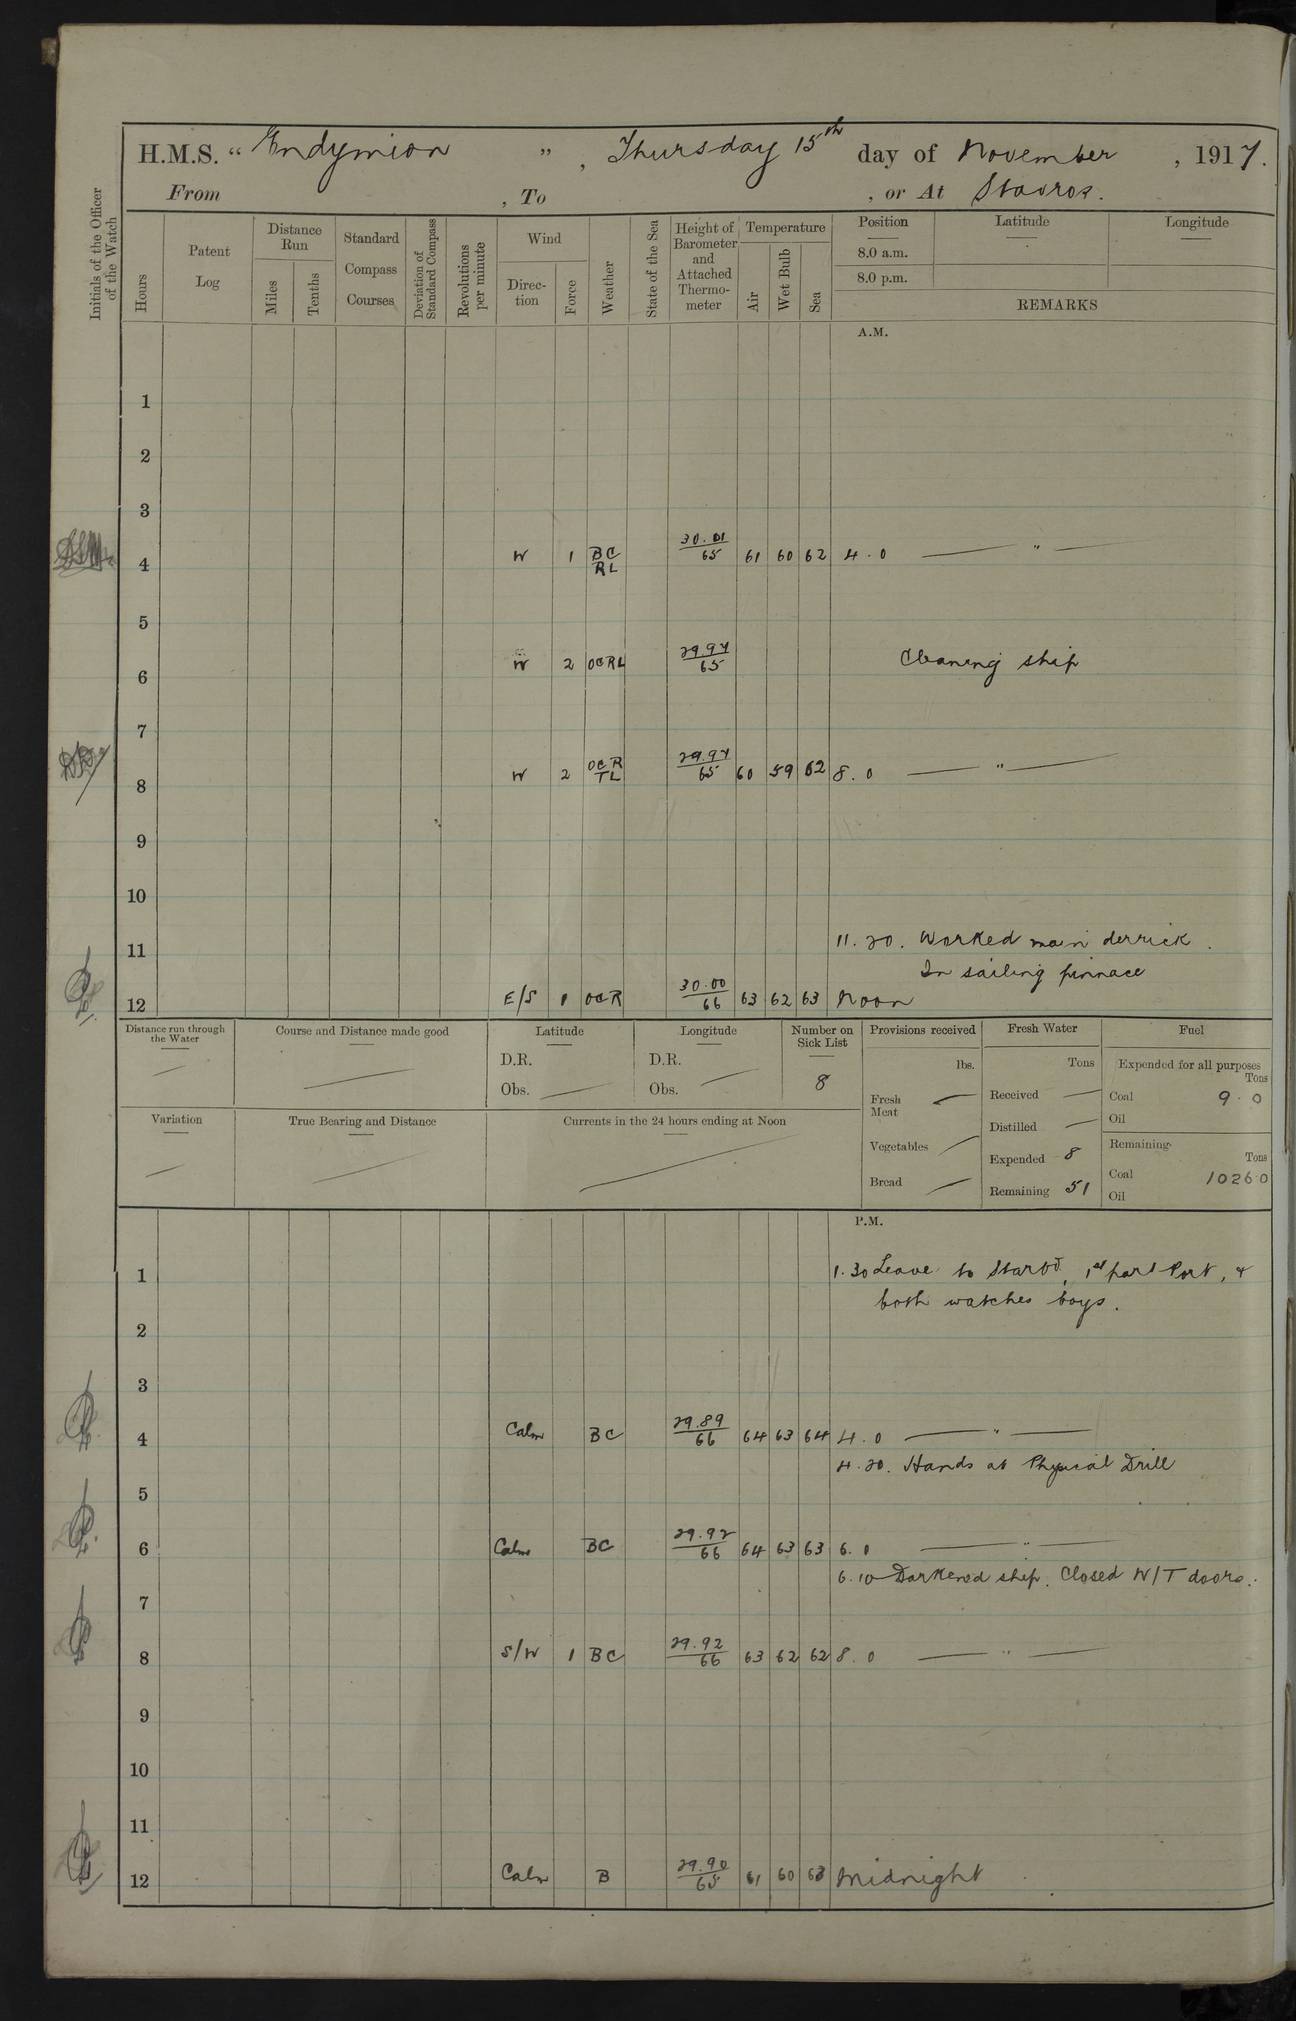 H.M.S. “ Endymion ” , Thursday 15th day of November , 1917.
From , To , or At Stavros.
Initials of the Officer of the Watch
Hours
Patent Log
Distance Run
Miles
Tenths
Standard Compass Courses
Deviation of Standard Compass
Revolutions per minute
Wind
Direction
Force
Weather
State of the Sea
Height of Barometer and Attached Thermometer
Temperature
Air
Wet Bulb
Sea
Position
Latitude
Longitude
8.0 a.m.
8.0 p.m.
REMARKS
A.M.
1
2
3
4 W 1 BC/RL 30.01/65 61 60 62 4.0 — " —
5
6 W 2 OCRL 29.97/65 Cleaning ship
7
8 W 2 OCR/TL 29.97/65 60 59 62 8.0 — " —
9
10
11 11.20. Worked main derrick.
In sailing pinnace
12 E/S 1 OCR 30.00/66 63 62 63 Noon
Distance run through the Water
Course and Distance made good
Latitude
D.R.
Obs. —
Longitude
D.R.
Obs. —
Number on Sick List
8
Provisions received
lbs.
Fresh Meat —
Vegetables —
Bread —
Fresh Water
Tons
Received —
Distilled —
Expended 8
Remaining 51
Fuel
Expended for all purposes
Tons
Coal 9.0
Oil
Remaining
Tons
Coal 1026.0
Oil
Variation
True Bearing and Distance
Currents in the 24 hours ending at Noon
P.M.
1 1.30 Leave to Starbd, 1st part Port, &
both watches boys.
2
3
4 Calm BC 29.89/66 64 63 64 4.0 — " —
4.20. Hands at Physical Drill
5
6 Calm BC 29.92/66 64 63 63 6.0 — " —
6.10 Darkened ship. Closed W/T doors.
7
8 S/W 1 BC 29.92/66 63 62 62 8.0 — " —
9
10
11
12 Calm B 29.90/65 61 60 63 Midnight